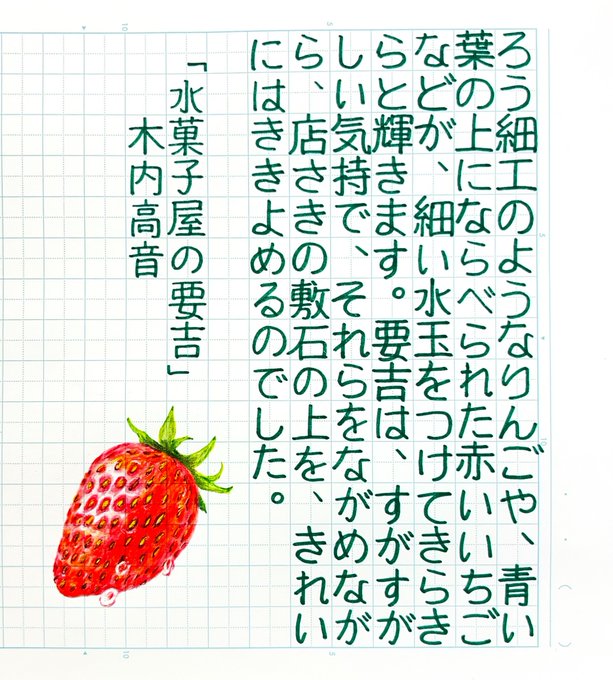 ろう細工のようなりんごや、青い
葉の上にならべられた赤いいちご
などが、細い水玉をつけてきらき
らと輝きます。要吉は、すがすが
しい気持で、それらをながめなが
ら、店さきの敷石の上を、きれい
にはききよめるのでした。
「水菓子屋の要吉」
木内高音